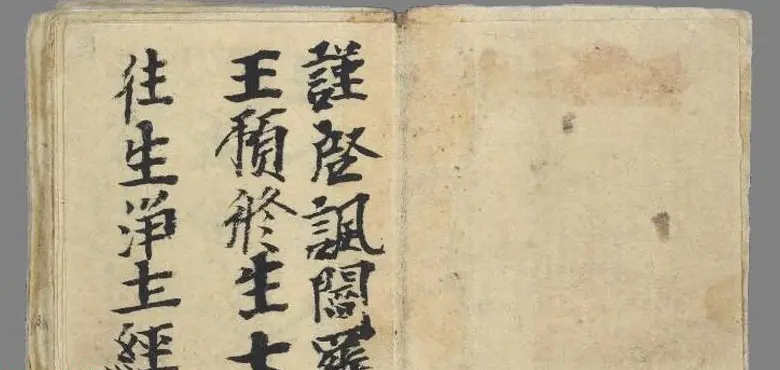 謹啓諷閻羅
王預修生七
往生淨土經